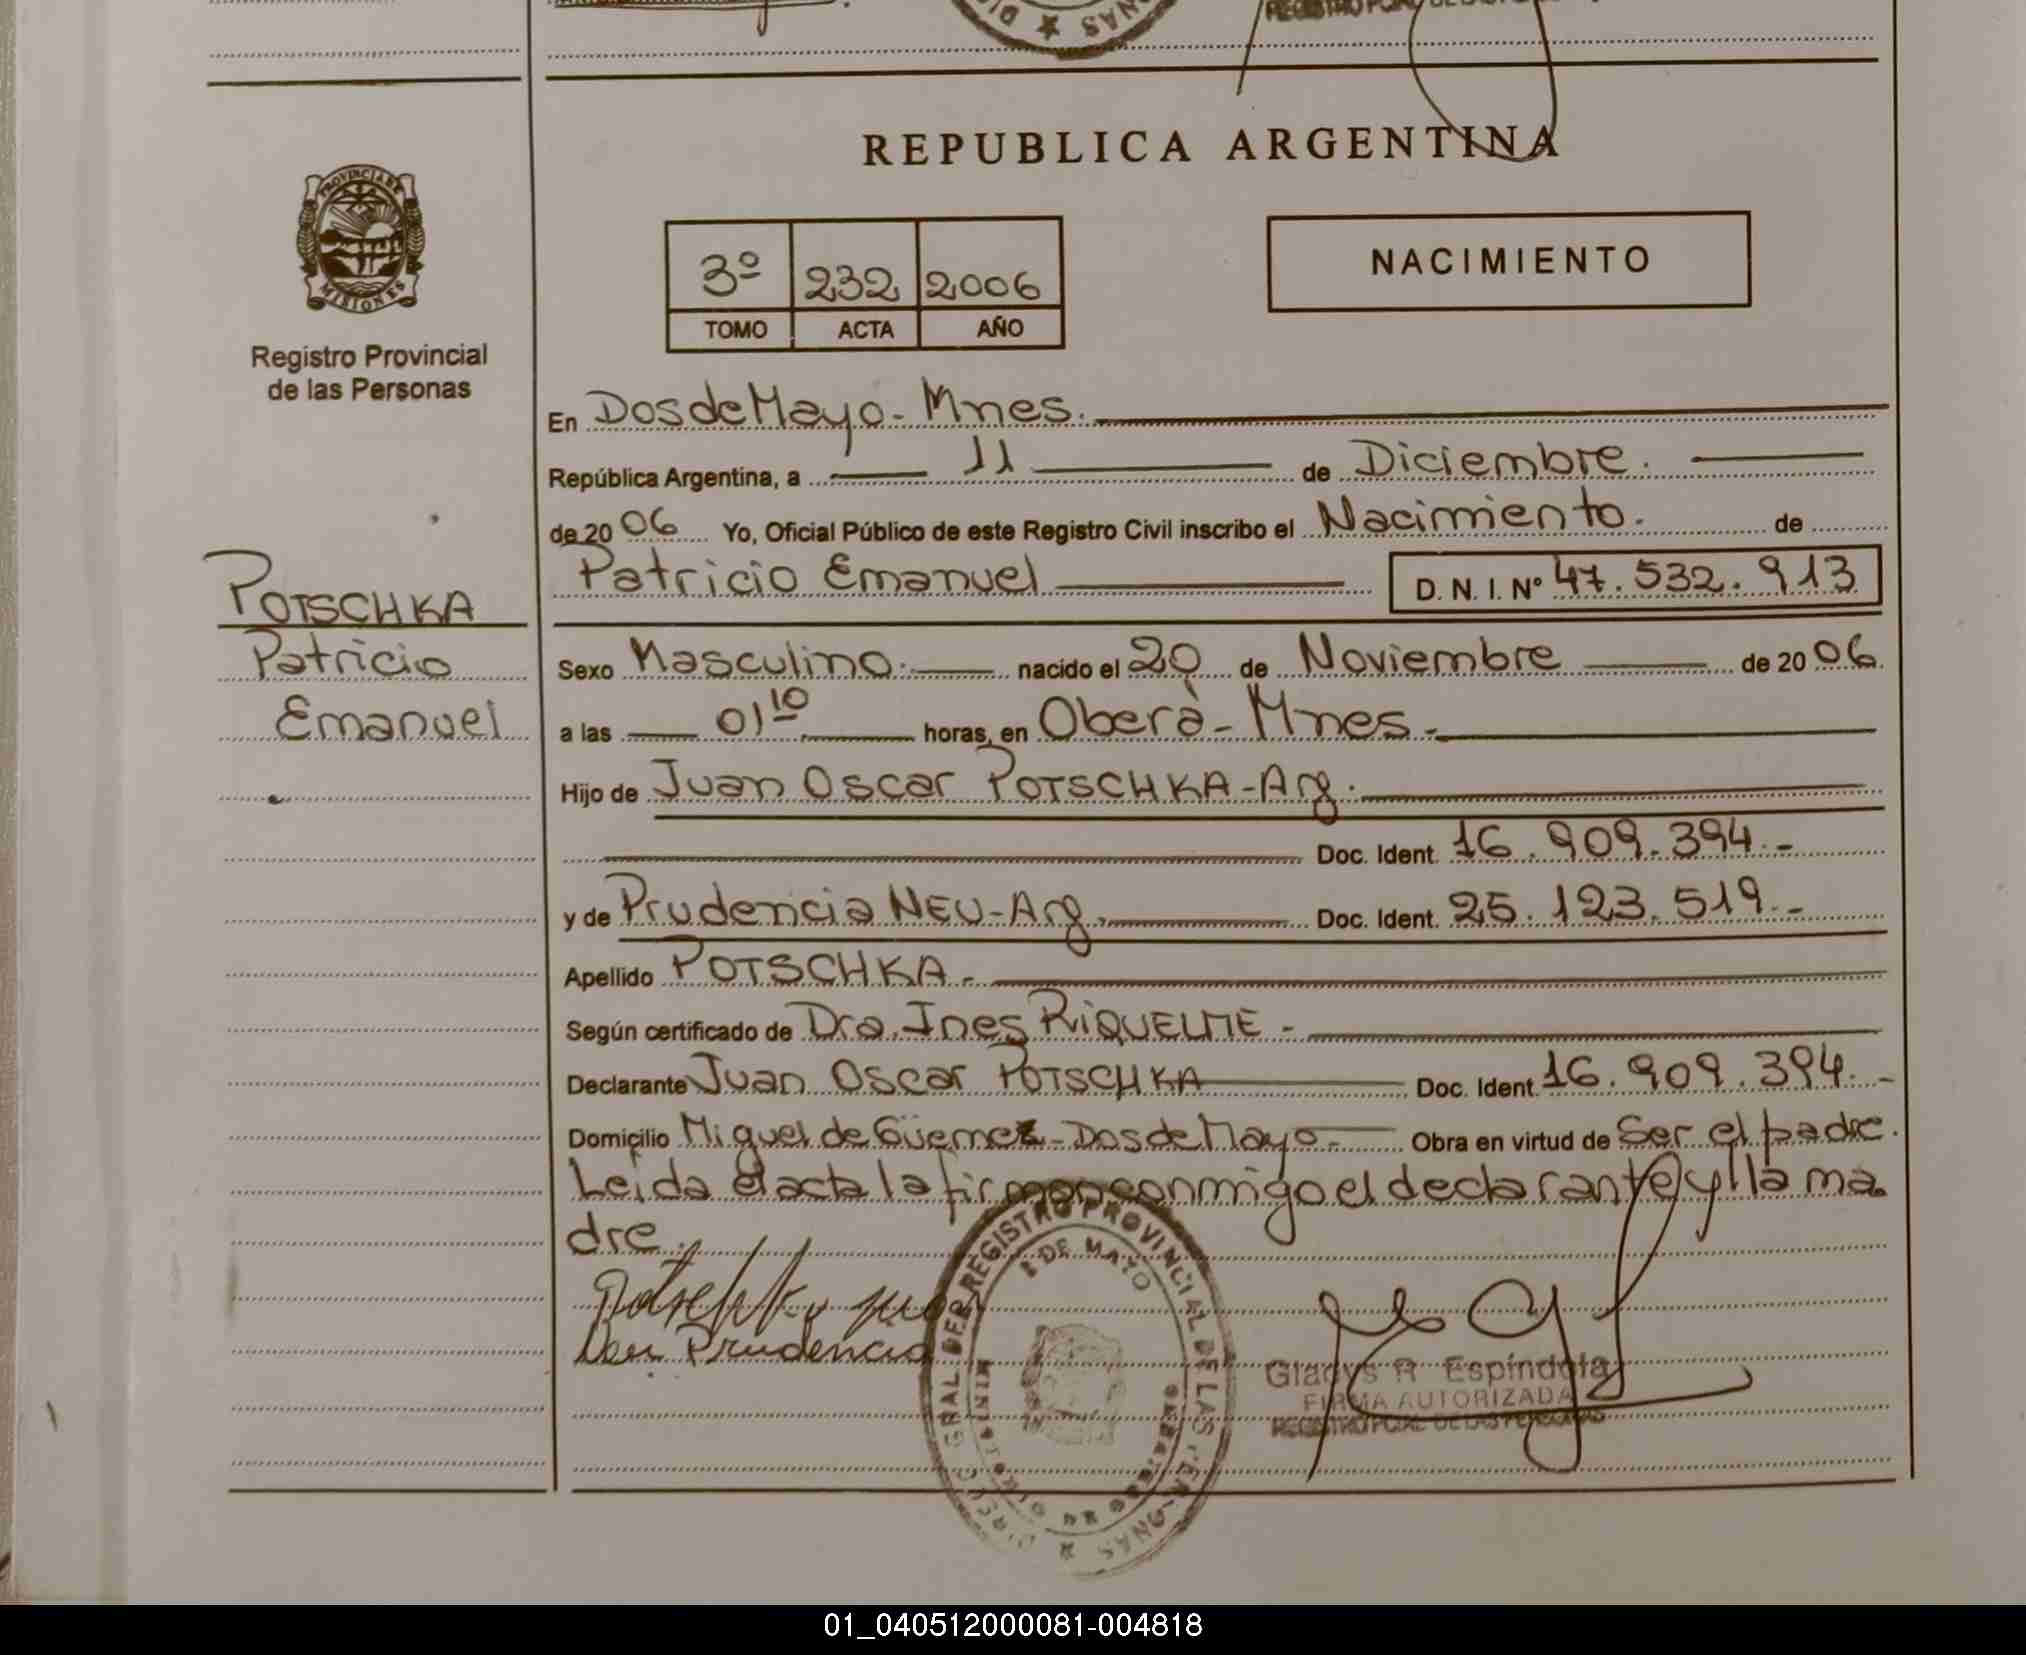 REPUBLICA ARGENTINA
PROVINCIA DE
MISIONES
Registro Provincial
de las Personas
3º 232 2006
TOMO ACTA AÑO
NACIMIENTO
En Dos de Mayo - Mnes.
República Argentina, a 11 de Diciembre.
de 20 06 Yo, Oficial Público de este Registro Civil inscribo el Nacimiento. de
Patricio Emanuel D. N. I. Nº 47.532.913
POTSCHKA
Patricio
Emanuel
Sexo Masculino. nacido el 20 de Noviembre de 20 06
a las 01 10 horas, en Oberà - Mnes -
Hijo de Juan Oscar POTSCHKA - Arg.
Doc. Ident. 16.909.394.-
y de Prudencia NEU - Arg. Doc. Ident. 25.123.519.-
Apellido POTSCHKA.-
Según certificado de Dra. Ines RIQUELME -
Declarante Juan Oscar POTSCHKA Doc. Ident. 16.909.394.-
Domicilio Miguel de Güemez - Dos de Mayo. Obra en virtud de Ser el padre.
Leida el acta la firman conmigo el declarante y la ma
dre.
Neu Prudencia
REGISTRO PROVINCIAL DE LAS
DE MAYO
Gladys R Espíndola
FIRMA AUTORIZADA
REGISTRO PCIAL DE LAS PERSONAS
01_040512000081-004818